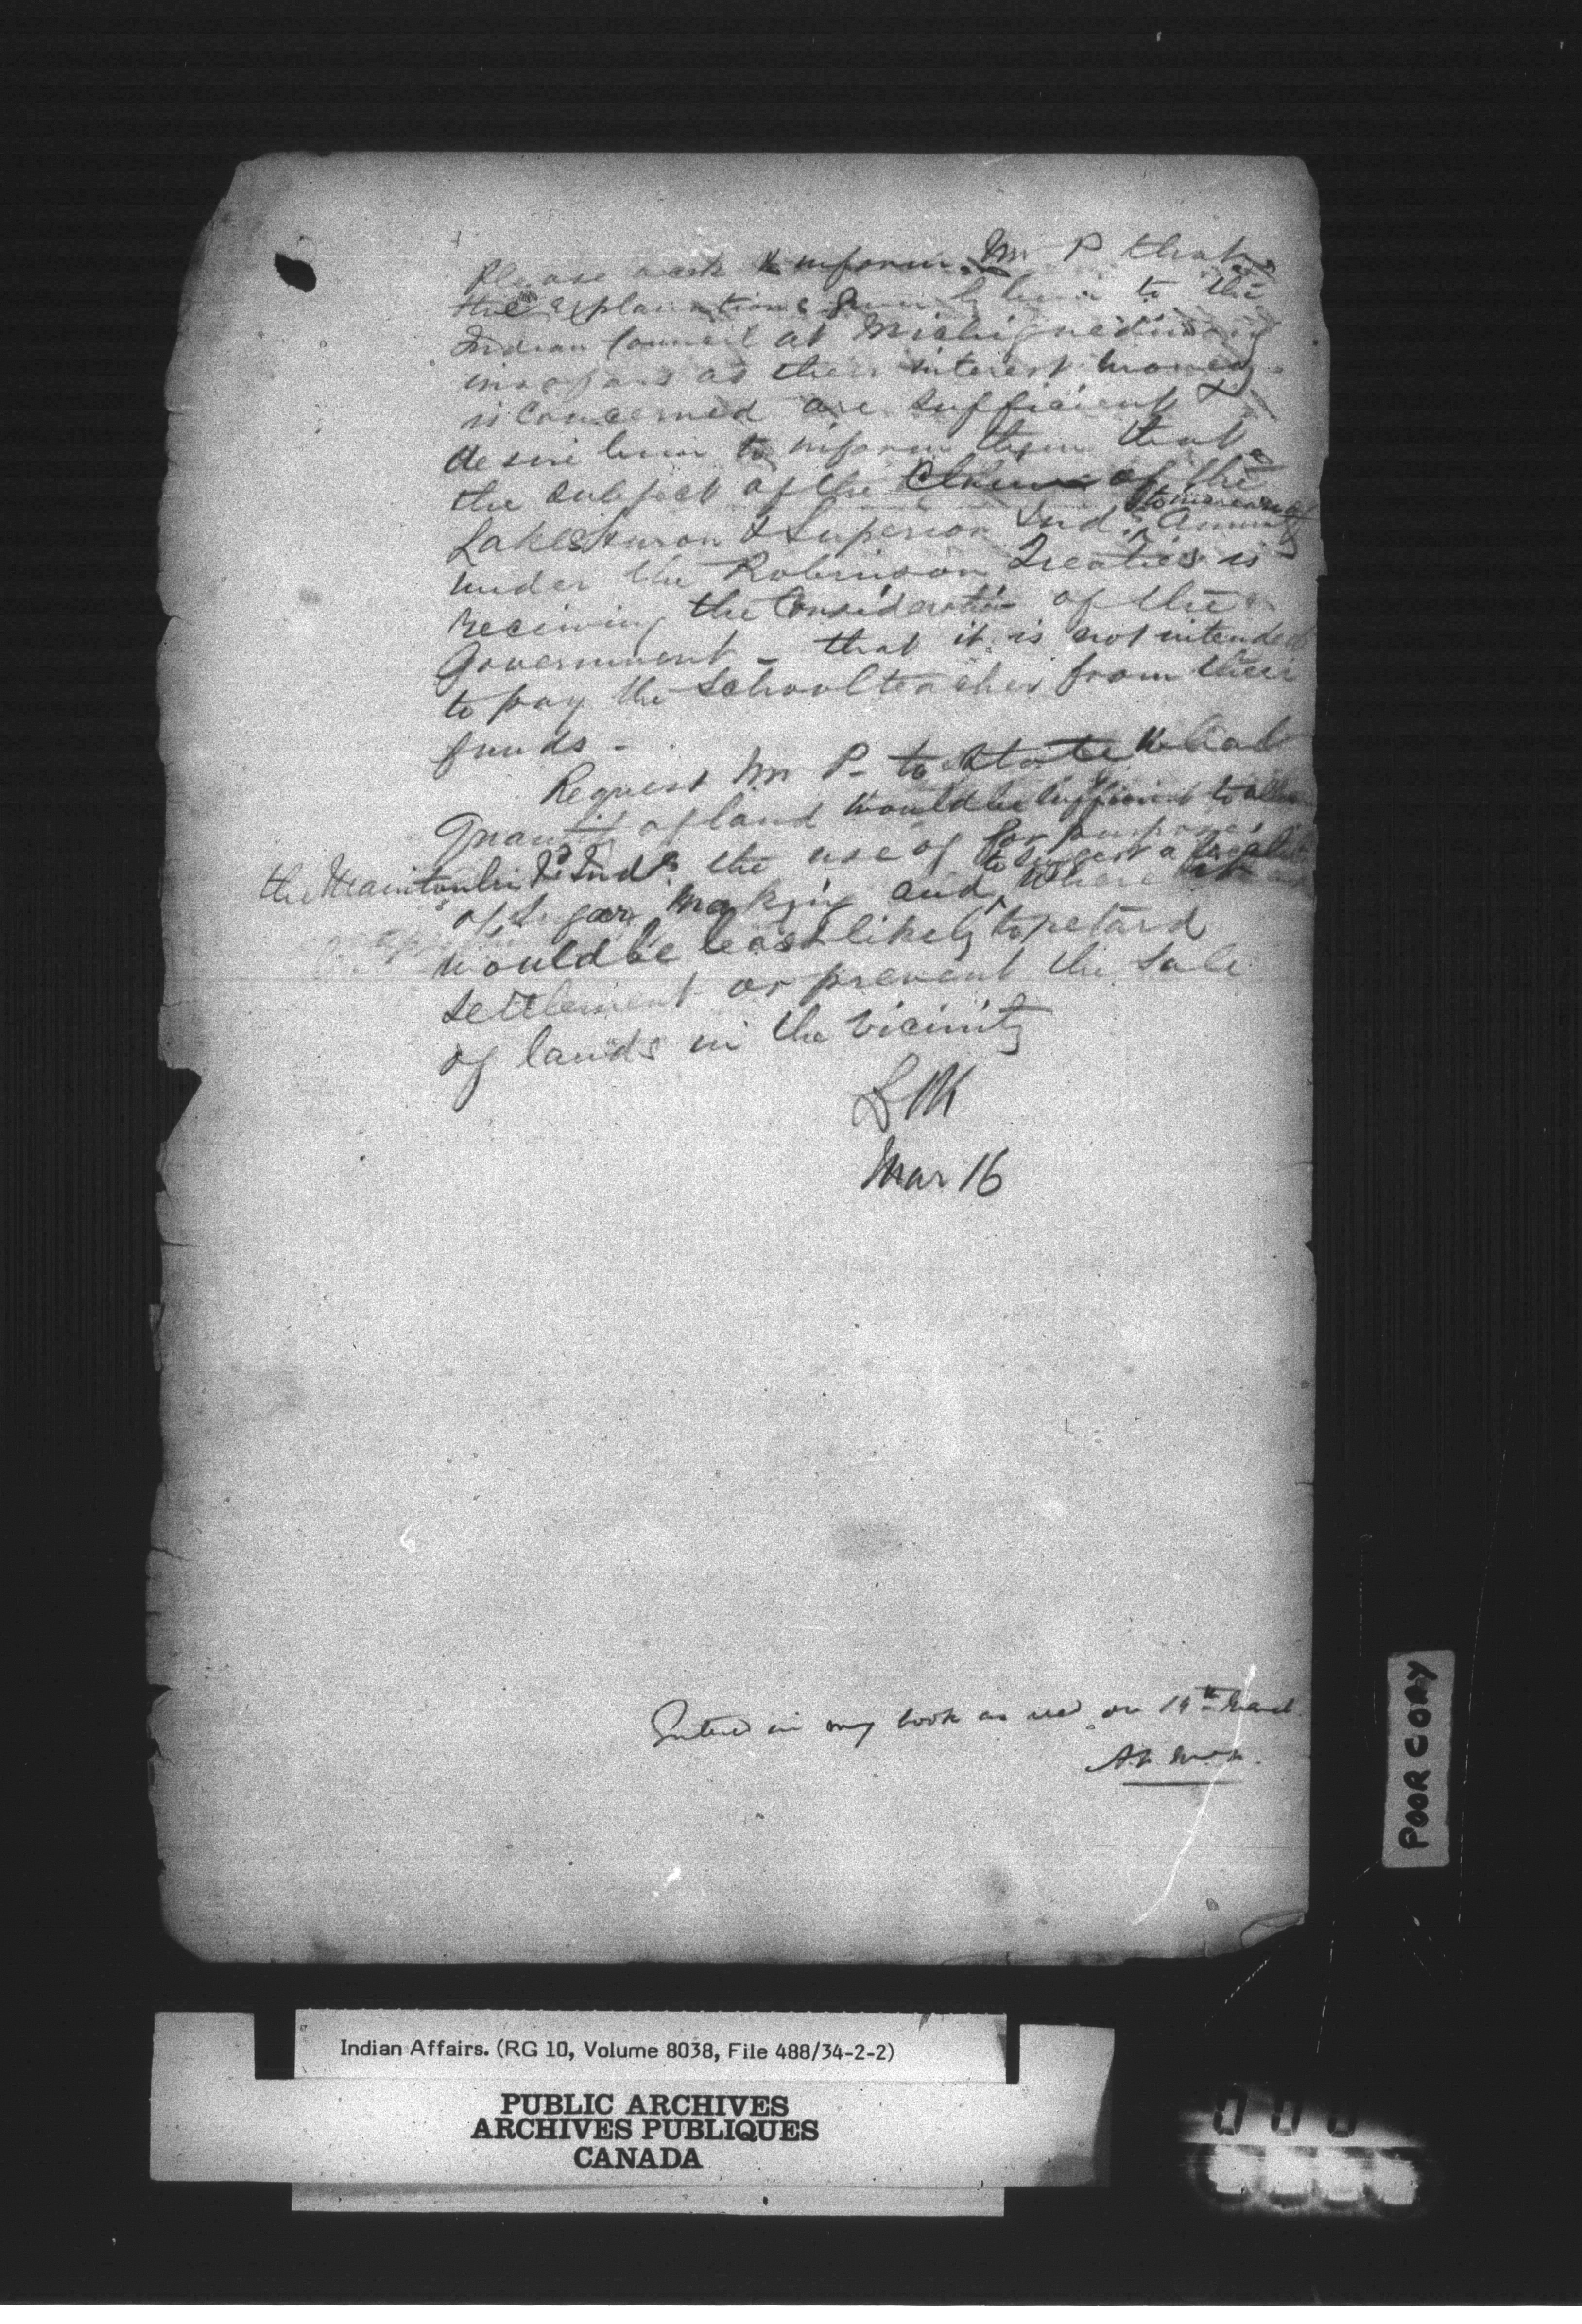 Please ack & inform Mr P that
the explanations given by him to the
Indian Council at Michigiwedinong
insofar as their interest money
is concerned are sufficient &
desire him to inform them that
the subject of the claim of the
Lakes Huron & Superior Inds to increase of Annuity
under the Robinson Treaties is
receiving the Consideration of the
Government - that it is not intended
to pay the School teacher from their
funds -
Request Mr P - to state what
quantity of land would be sufficient to allow
the Manitoulin Id Inds the use of for purposes
of sugar making and to suggest a locality where it
would be least likely to retard
settlement or prevent the sale
of lands in the vicinity
Mar 16
Entered in my book as recd on 19th March
POOR COPY
Indian Affairs. (RG 10, Volume 8038, File 488/34-2-2)
PUBLIC ARCHIVES
ARCHIVES PUBLIQUES
CANADA
000